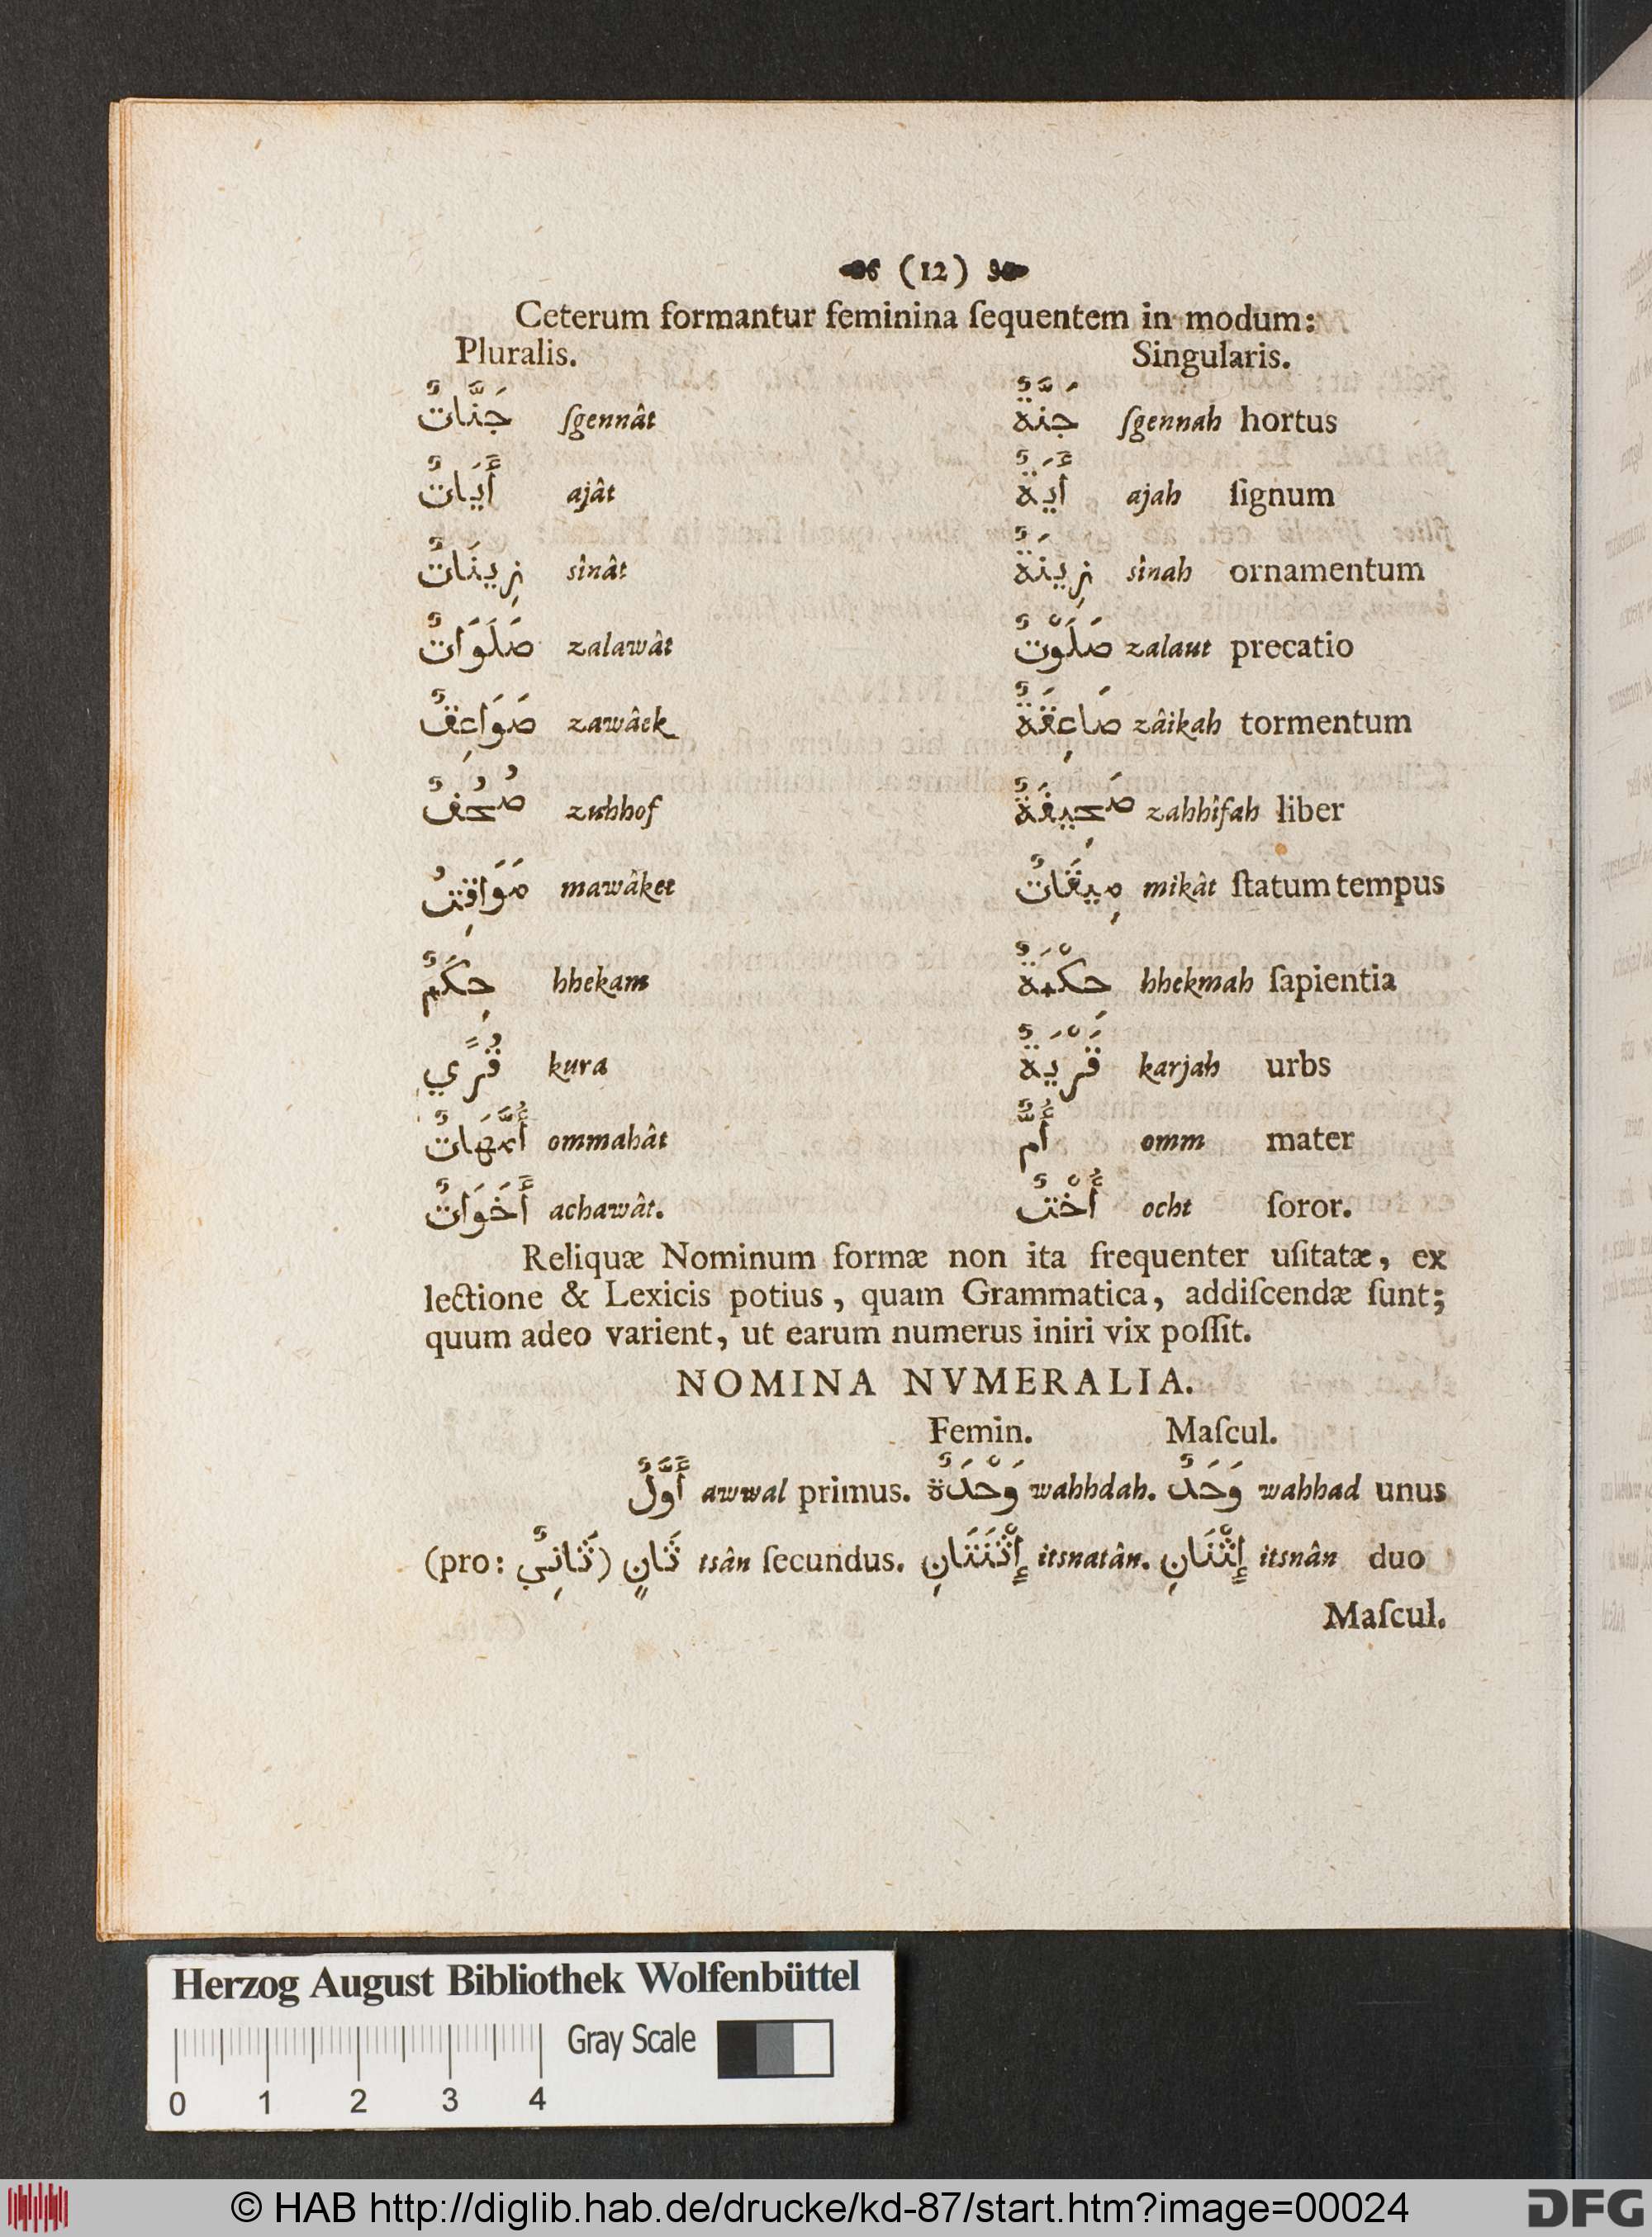 (12)
Ceterum formantur feminina ſequentem in modum:
Pluralis. Singularis.
جَنَّاتٌ ſgennât جَنَّةٌ ſgennah hortus
أَيَاتٌ ajât أَيَةٌ ajah ſignum
زِينَاتٌ sînât زِينَةٌ sînah ornamentum
صَلَوَاتٌ zalawât صَلَوْتٌ zalaut precatio
صَوَاعِقٌ zawâek صَاعِقَةٌ zâikah tormentum
صُحُفٌ zuhhof صَحِيفَةٌ zahhîfah liber
مَوَاقِتُ mawâket مِيقَاتٌ mikât ſtatum tempus
حِكَمٌ hhekam حِكْمَةٌ hhekmah ſapientia
قُرًي kura قَرْيَةٌ karjah urbs
أُمَّهَاتٌ ommahât أُمٌّ omm mater
أَخَوَاتٌ achawât. أُخْتٌ ocht ſoror.
Reliquæ Nominum formæ non ita frequenter uſitatæ, ex
lectione & Lexicis potius, quam Grammatica, addiſcendæ ſunt;
quum adeo varient, ut earum numerus iniri vix poſſit.
NOMINA NVMERALIA.
Femin. Maſcul.
أَوَّلٌ awwal primus. وَحْدَةٌ wahhdah. وَحَدٌ wahhad unus
(pro: ثَانِيٌ) ثَانٍ tsân ſecundus. إِثْنَتَانِ itsnatân. إِثْنَانِ itsnân duo
Maſcul.
Herzog August Bibliothek Wolfenbüttel
Gray Scale
0 1 2 3 4
© HAB http://diglib.hab.de/drucke/kd-87/start.htm?image=00024
DFG